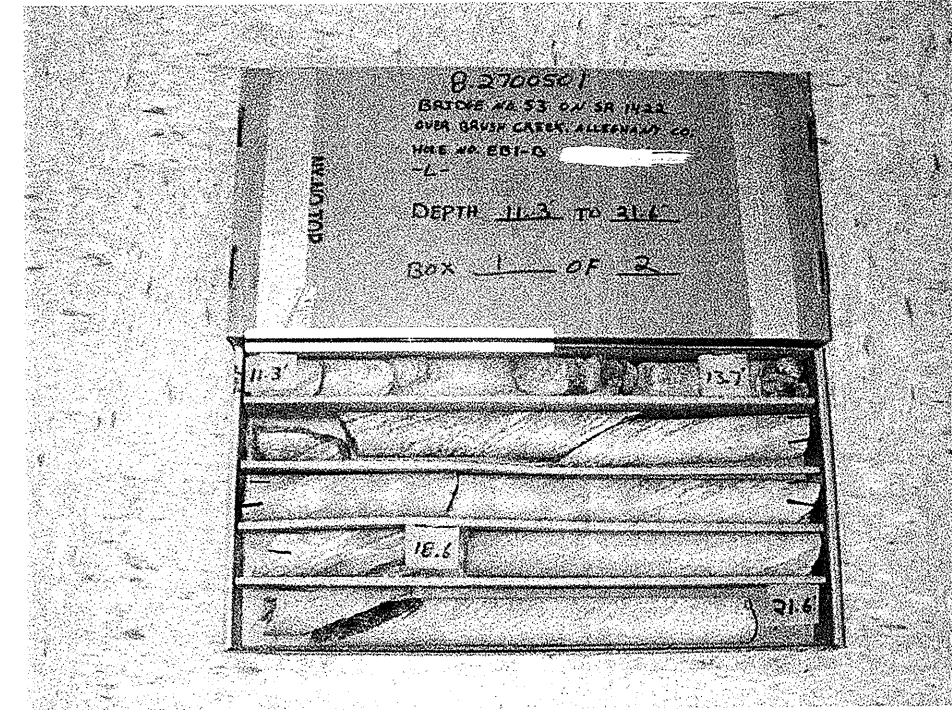 8.2700501
BRIDGE NO. 53 ON SR 1422
OVER BRUSH CREEK, ALLEGHANY CO.
HOLE NO. EB1-B
-L-
DEPTH 11.3 TO 21.6
BOX 1 OF 2
11.3'
13.7'
18.6
21.6